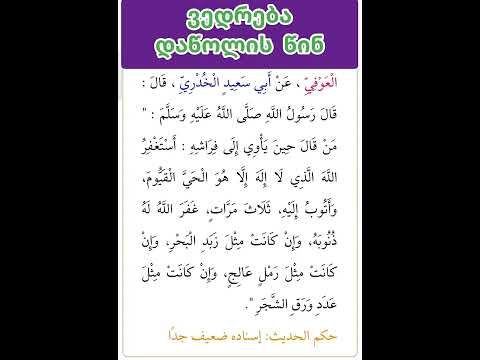 ვედრება
დაწოლის წინ
الْعَوْفِيِّ ، عَنْ أَبِي سَعِيدٍ الْخُدْرِيِّ ، قَالَ :
قَالَ رَسُولُ اللَّهِ صَلَّى اللَّهُ عَلَيْهِ وَسَلَّمَ : "
مَنْ قَالَ حِينَ يَأْوِي إِلَى فِرَاشِهِ : أَسْتَغْفِرُ
اللَّهَ الَّذِي لَا إِلَهَ إِلَّا هُوَ الْحَيَّ الْقَيُّومَ،
وَأَتُوبُ إِلَيْهِ، ثَلَاثَ مَرَّاتٍ، غَفَرَ اللَّهُ لَهُ
ذُنُوبَهُ، وَإِنْ كَانَتْ مِثْلَ زَبَدِ الْبَحْرِ، وَإِنْ
كَانَتْ مِثْلَ رَمْلِ عَالِجٍ، وَإِنْ كَانَتْ مِثْلَ
عَدَدِ وَرَقِ الشَّجَرِ ".
حكم الحديث: إسناده ضعيف جدًا